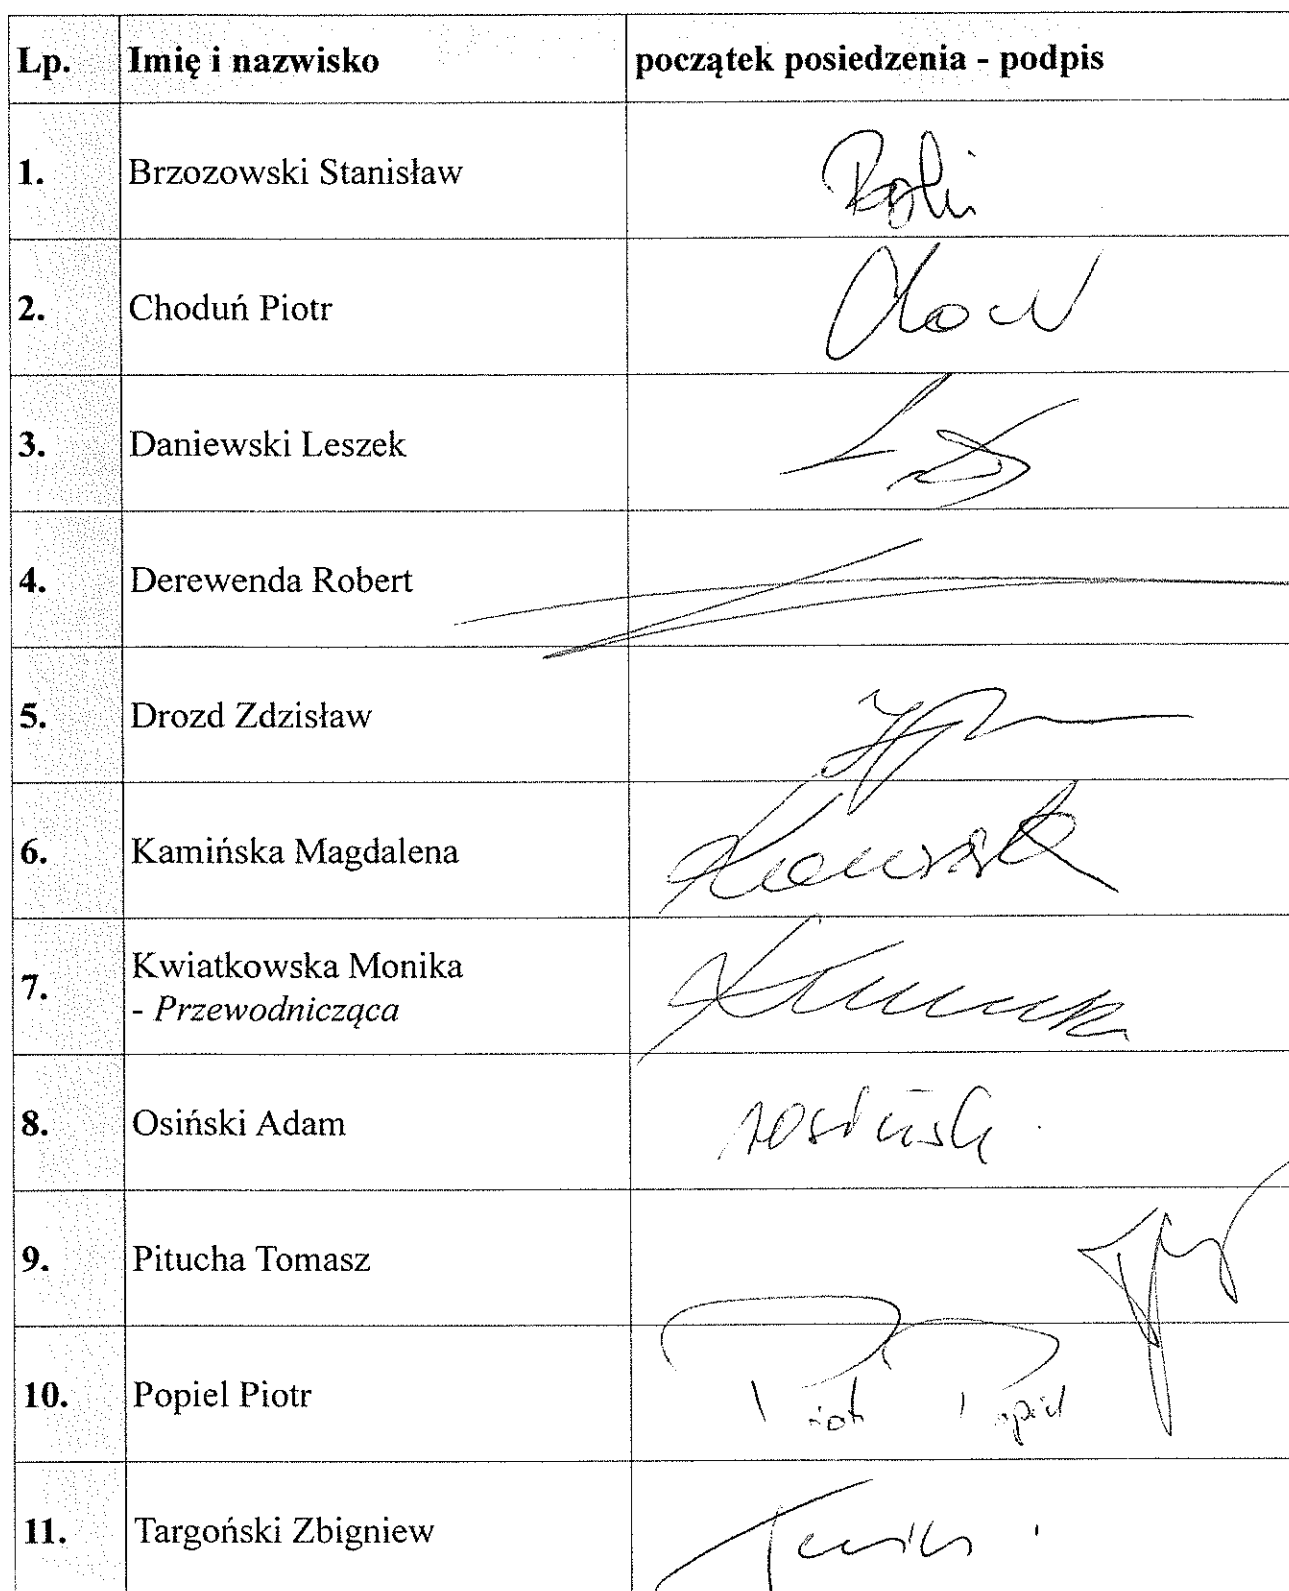 Lp. Imię i nazwisko początek posiedzenia - podpis
1. Brzozowski Stanisław
2. Choduń Piotr
3. Daniewski Leszek
4. Derewenda Robert
5. Drozd Zdzisław
6. Kamińska Magdalena
7. Kwiatkowska Monika
- Przewodnicząca
8. Osiński Adam
9. Pitucha Tomasz
10. Popiel Piotr Piotr Popiel
11. Targoński Zbigniew